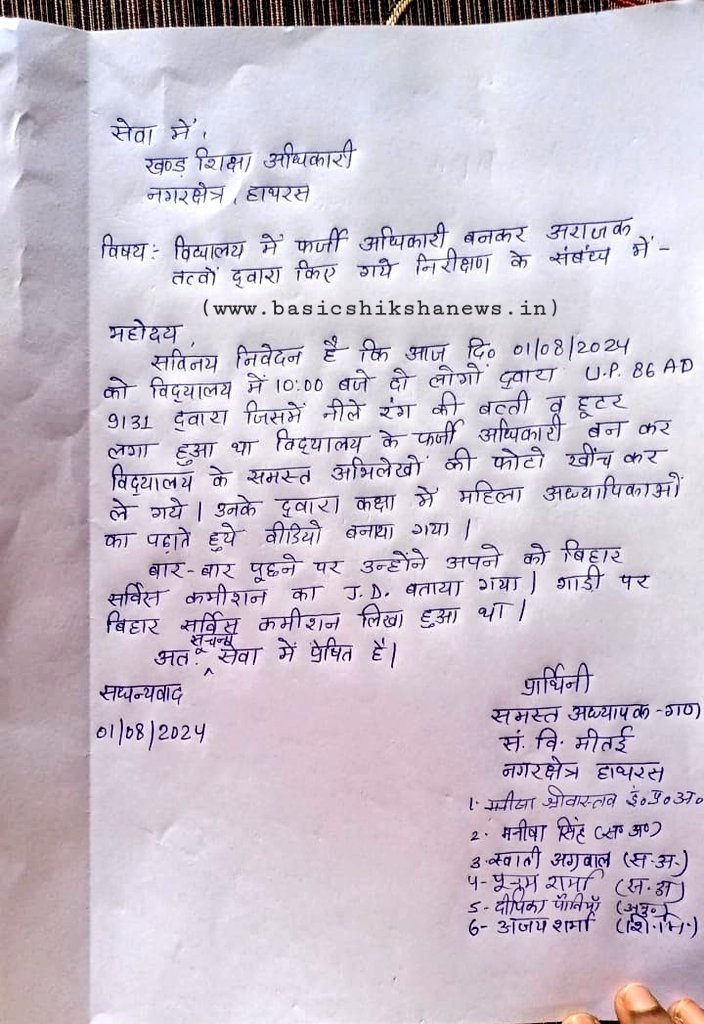 सेवा में,
खण्ड शिक्षा अधिकारी
नगरक्षेत्र, हाथरस
विषय: विद्यालय में फर्जी अधिकारी बनकर अराजक
तत्वों द्वारा किए गये निरीक्षण के संबंध में -
(www.basicshikshanews.in)
महोदय,
सविनय निवेदन है कि आज दि० 01/08/2024
को विद्यालय में 10:00 बजे दो लोगों द्वारा U.P. 86 AD
9131 द्वारा जिसमें नीले रंग की बत्ती व हूटर
लगा हुआ था विद्यालय के फर्जी अधिकारी बन कर
विद्यालय के समस्त अभिलेखों की फोटो खींच कर
ले गये। उनके द्वारा कक्षा में महिला अध्यापिकाओं
का पढ़ाते हुये वीडियो बनाया गया।
बार-बार पूछने पर उन्होंने अपने को बिहार
सर्विस कमीशन का J.D. बताया गया। गाड़ी पर
बिहार सर्विस कमीशन लिखा हुआ था।
अतः सूचनार्थ सेवा में प्रेषित है।
सधन्यवाद
01/08/2024
प्रार्थिनी
समस्त अध्यापक-गण
सं. वि. मीतई
नगरक्षेत्र हाथरस
1. मनीषा श्रीवास्तव इं०प्र०अ०
2. मनीषा सिंह (स० अ०)
3. स्वाती अग्रवाल (स.अ.)
4- पूनम शर्मा (स.अ)
5- दीपिका (अनु०)
6- अजय शर्मा (शि.मि.)